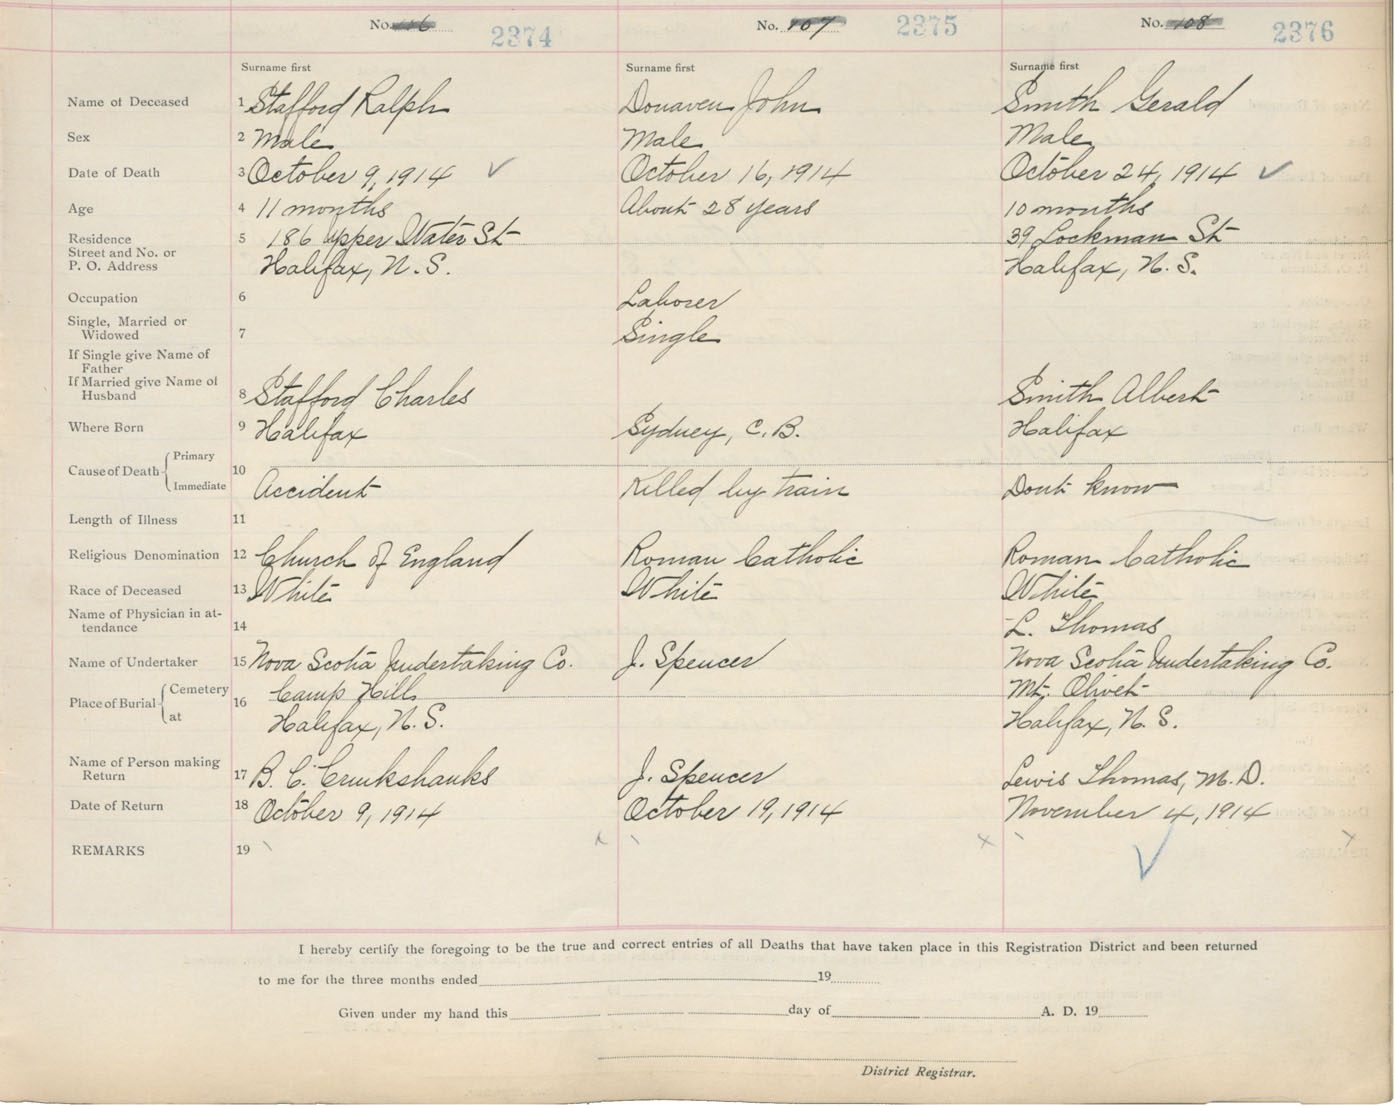 No. 106 2374 No. 107 2375 No. 108 2376
Surname first Surname first Surname first
Name of Deceased 1 Stafford Ralph Donaven John Smith Gerald
Sex 2 Male Male Male
Date of Death 3 October 9, 1914 ✓ October 16, 1914 October 24, 1914 ✓
Age 4 11 months About 28 years 10 months
Residence 5 186 Upper Water St 39 Lockman St
Street and No. or
P. O. Address Halifax, N. S. Halifax, N. S.
Occupation 6 Laborer
Single, Married or
Widowed 7 Single
If Single give Name of
Father
If Married give Name of
Husband 8 Stafford Charles Smith Albert
Where Born 9 Halifax Sydney, C. B. Halifax
Cause of Death { Primary
10
Immediate Accident Killed by train Dont know
Length of Illness 11
Religious Denomination 12 Church of England Roman Catholic Roman Catholic
Race of Deceased 13 White White White
Name of Physician in at-
tendance 14 L. Thomas
Name of Undertaker 15 Nova Scotia Undertaking Co. J. Spencer Nova Scotia Undertaking Co.
Place of Burial { Cemetery 16 Camp Hill Mt. Olivet
at Halifax, N. S. Halifax, N. S.
Name of Person making
Return 17 B. C. Cruikshanks J. Spencer Lewis Thomas, M. D.
Date of Return 18 October 9, 1914 October 19, 1914 November 4, 1914
REMARKS 19
I hereby certify the foregoing to be the true and correct entries of all Deaths that have taken place in this Registration District and been returned
to me for the three months ended 19
Given under my hand this day of A. D. 19
District Registrar.